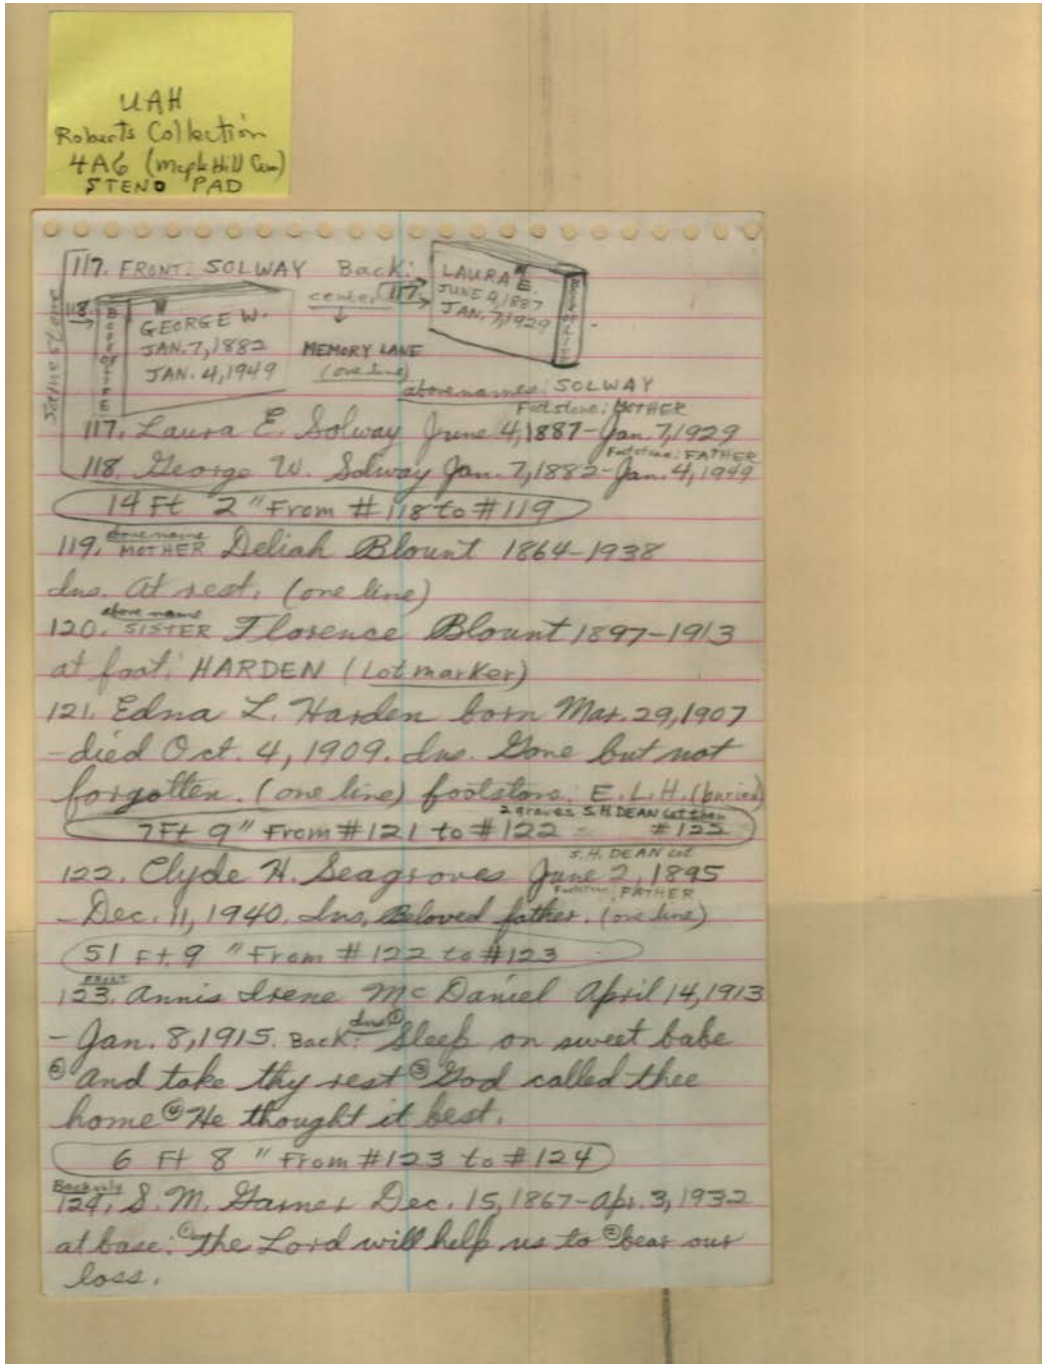 UAH
Roberts Collection
4A6 (Maple Hill Cem)
STENO PAD
117. FRONT: SOLWAY Back:
center 117.
LAURA E.
JUNE 4, 1887
JAN. 7, 1929
BOOK OF LIFE
Same stone
118.
BOOK OF LIFE
GEORGE W.
JAN. 7, 1882
JAN. 4, 1949
MEMORY LANE
(one line)
above names: SOLWAY
Footstone: MOTHER
117. Laura E. Solway June 4, 1887-Jan. 7, 1929
Footstone: FATHER
118. George W. Solway Jan. 7, 1882-Jan. 4, 1949
14 Ft 2" From #118 to #119
above name
119. MOTHER Deliah Blount 1864-1938
Ins. At rest. (one line)
above name
120. SISTER Florence Blount 1897-1913
at foot: HARDEN (Lot marker)
121. Edna L. Harden born Mar. 29, 1907
-died Oct. 4, 1909. Ins. Gone but not
forgotten. (one line) footstone. E.L.H. (buried)
2 graves S.H. DEAN Lot then
7 Ft 9" From #121 to #122 - #123
S.H. DEAN Lot
122. Clyde H. Seagroves June 2, 1895
Footstone: FATHER
-Dec. 11, 1940. Ins. Beloved father. (one line)
51 Ft. 9" From #122 to #123
123. Annis Irene McDaniel April 14, 1913
-Jan. 8, 1915. Back: Ins ① Sleep on sweet babe
② And take thy rest ③ God called thee
home ④ He thought it best.
6 Ft 8" From #123 to #124
Back only
124. S. M. Garner Dec. 15, 1867-Apr. 3, 1932
at base: ① The Lord will help us to ② bear our
loss.